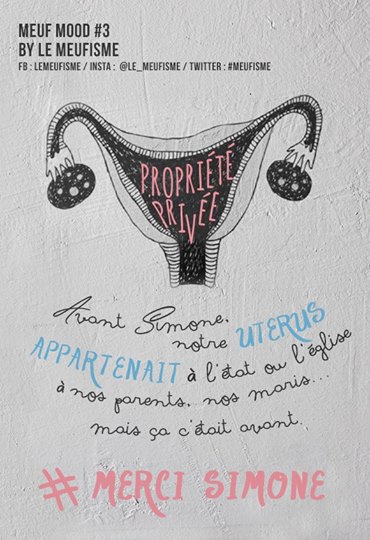 MEUF MOOD #3
BY LE MEUFISME
FB : LEMEUFISME / INSTA : @LE_MEUFISME / TWITTER : #MEUFISME
PROPRIÉTÉ
PRIVÉE
Avant Simone,
notre UTERUS
APPARTENAIT à l'état ou l'église
à nos parents, nos maris...
mais ça c'était avant.
# MERCI SIMONE